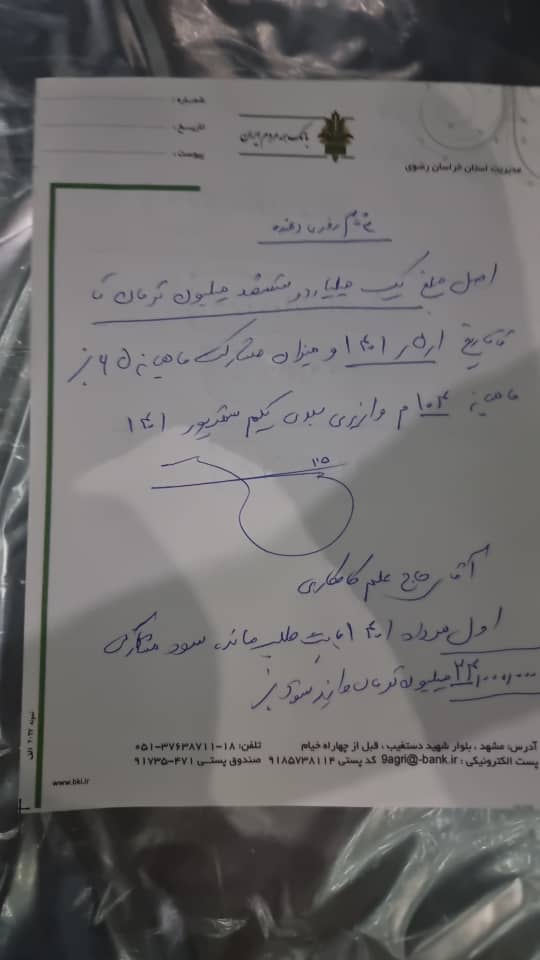 بانک همه مردم ایران
مدیریت استان خراسان رضوی
شماره:
تاریخ:
پیوست:
اصل مبلغ یک میلیارد و ششصد میلیون تومان تا
تا تاریخ ۱ر۵ر۱۴۰۱ و میزان مشارکت ماهیانه ۶۵
ماهیانه ۱۰۴ م واریزی بعدی یکم شهریور ۱۴۰۱
آقای حاج علم کامکاری
اول مرداد ۱۴۰۱ بابت طلب مانده سود مشارکت
۲۴,۰۰۰,۰۰۰ میلیون تومان واریز شود
آدرس: مشهد ، بلوار شهید دستغیب ، قبل از چهارراه خیام
تلفن: ۱۸-۳۷۶۳۸۷۱۱-۰۵۱
پست الکترونیکی: 9agri@-bank.ir کد پستی ۹۱۸۵۷۳۸۱۱۴ صندوق پستی ۴۷۱-۹۱۷۳۵
www.bki.ir